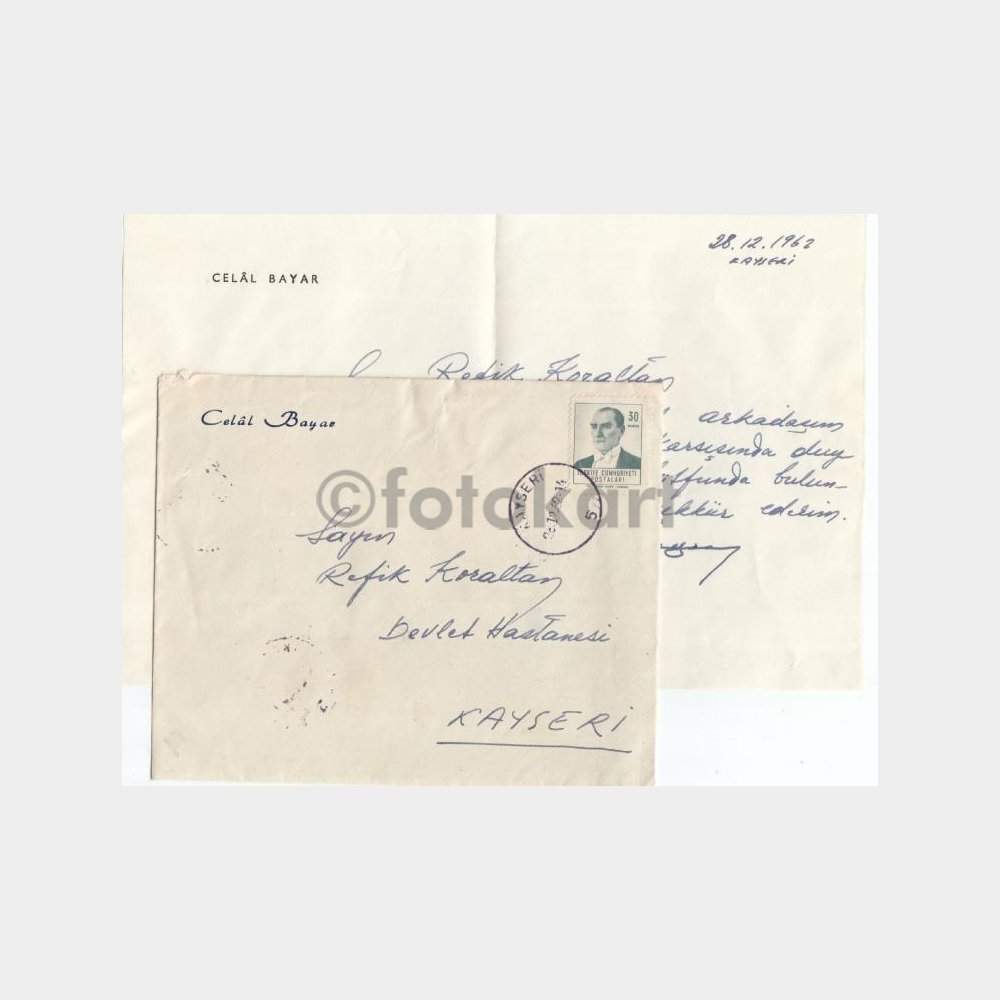 28.12.1962
KAYSERİ
CELÂL BAYAR
Refik Koraltan
arkadaşım
karşısında duy
bulun-
ederim.
Celâl Bayar
30
TÜRKİYE CUMHURİYETİ
POSTALARI
KAYSERİ
5
©fotokart
Sayın
Refik Koraltan
Devlet Hastanesi
KAYSERİ